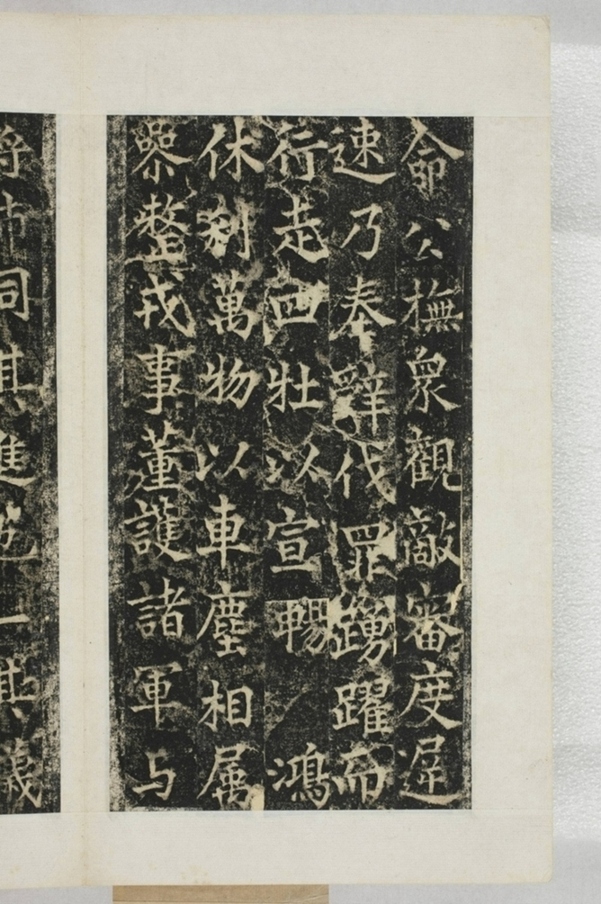 命公撫衆觀敵審度遲
速乃奉辭伐罪踴躍而
行走四牡以宣暢鴻
休利萬物以車塵相属
整戎事董護諸軍与
將帥同其進退一其